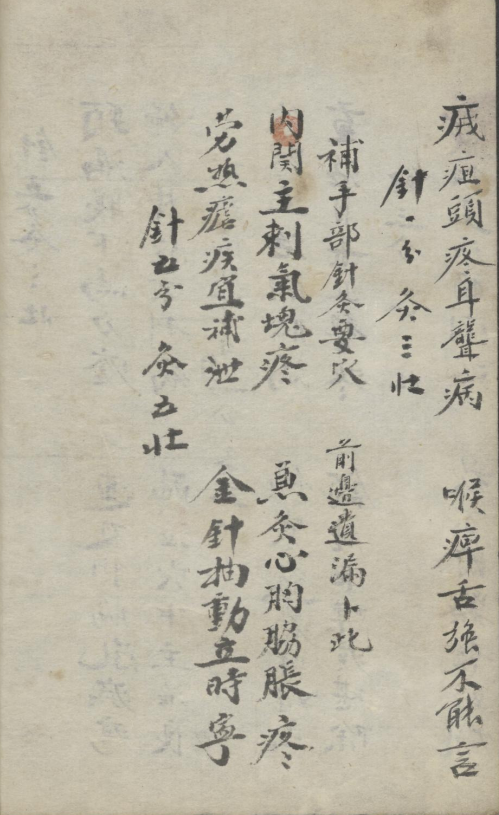 痎疽頭疼耳聾病 喉痺舌強不能言
針一分 灸三壯
補手部針灸要穴 前邊遺漏卜此
内関主刺氣塊疼 兼灸心胸脇脹疼
労熱瘧疾宜補泄 金針抽動立時寧
針五分 灸五壯